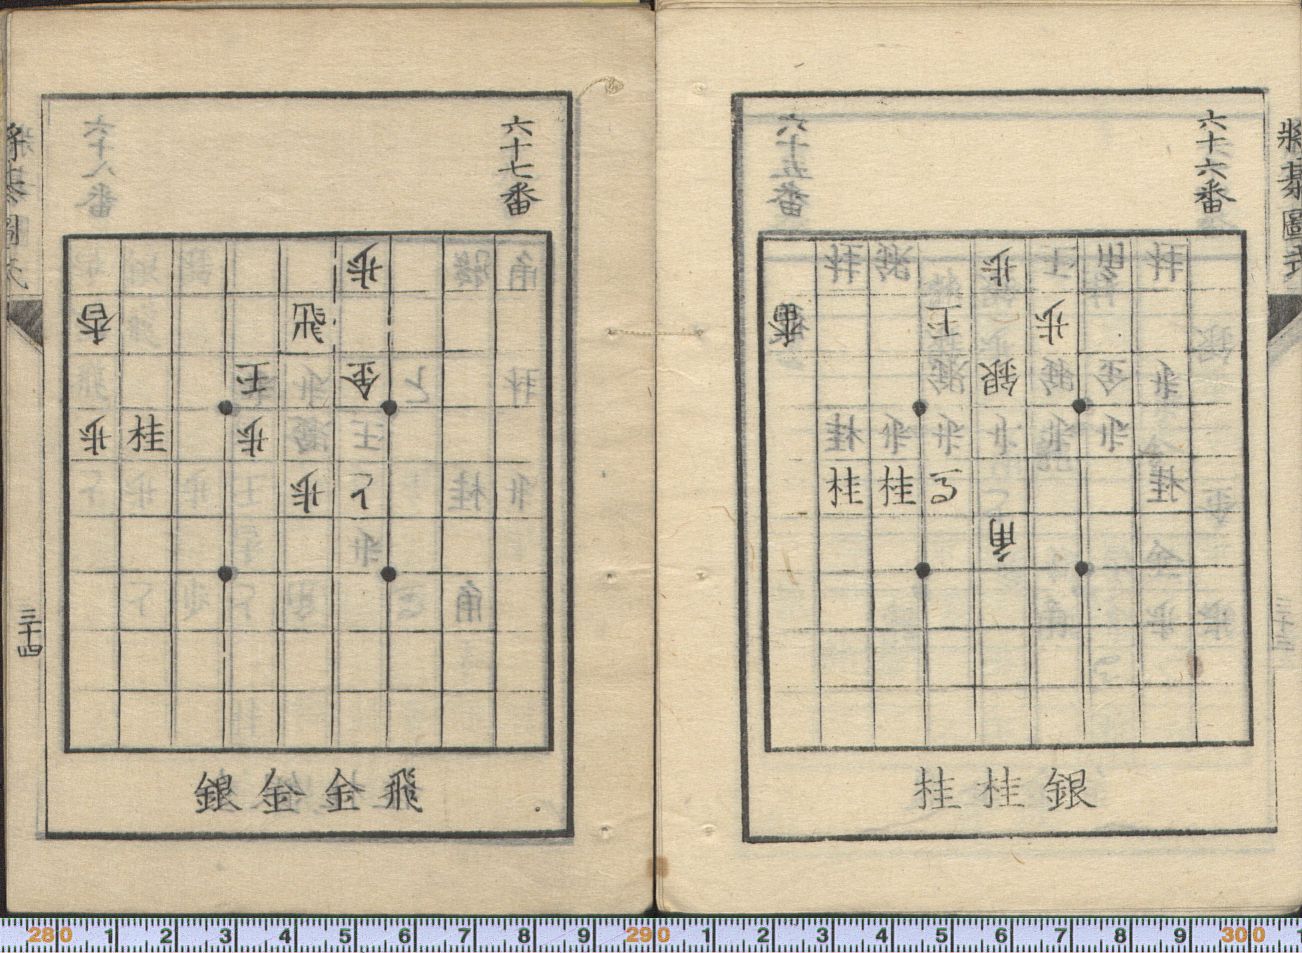 将棊圖式
六十六番
桂 角 歩 銀 桂
歩 王 香
歩 銀
歩 歩 歩 歩 歩 桂
桂 馬 桂 桂
角
銀桂桂
六十七番
歩
飛 香
金 王
歩 桂 歩
と 歩
角
飛金金銀
三十四
280 1 2 3 4 5 6 7 8 9 290 1 2 3 4 5 6 7 8 9 300 1